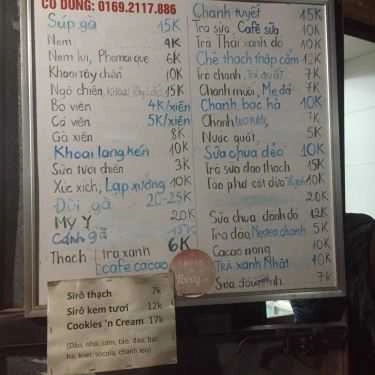 CÔ DUNG: 0169.2117.886
Súp gà 15K
Nem 4K
Nem lụi, Phomai que 6K
Khoai tây chiên 10K
Ngô chiên, Khoai lắc 15K
Bò viên 4K/xiên
Cá viên 5K/xiên
Gà xiên 8K
Khoai lang kén 10K
Sữa tươi chiên 3K
Xúc xích, Lạp xưởng 10K
Đùi gà 20-25K
Mỳ Ý 20K
Cánh gà 15K
Thạch trà xanh cafe cacao 6K
Chanh tuyết 15K
Trà sữa, Café sữa 10K
Trà Thái xanh đỏ 10K
Chè thạch thập cẩm 12K
Trà chanh, 7K
Chanh muối, Me đá 7K
Chanh bạc hà 10K
Chanh 7K
Nước quất 5K
Sữa chua dẻo 10K
Trà sữa đào thạch 15K
Tào phớ cốt dừa 10K
20K
Sữa chua đánh đá 12K
Trà đào, 5K
Cacao nóng 10K
Trà xanh Nhật 10K
Sữa 7K
Sirô thạch 7k
Sirô kem tươi 12k
Cookies 'n Cream 17k
(Dâu, nho, cam, táo, đào, bạc
hà, kiwi, socola, chanh leo)